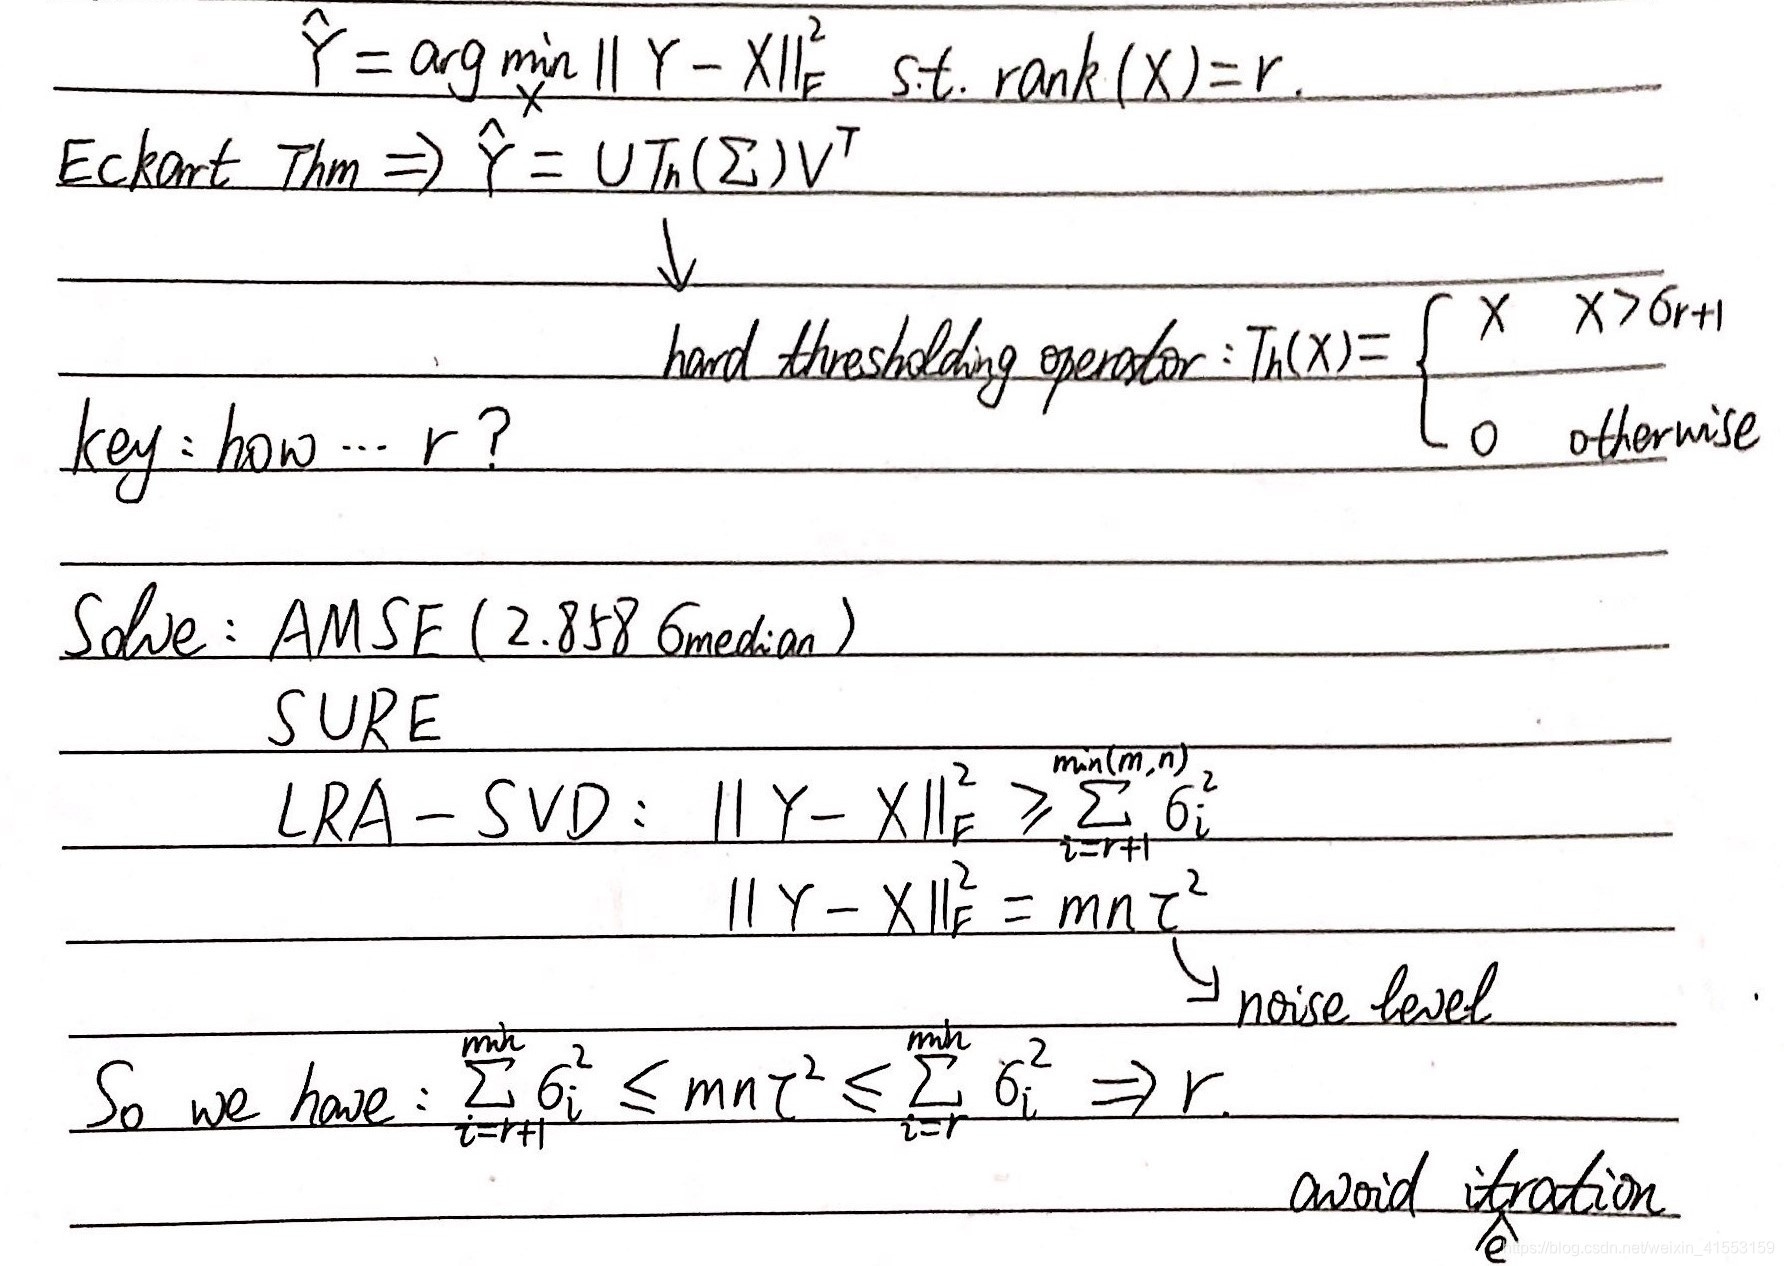 Ŷ = arg min_X || Y - X ||_F^2 s.t. rank(X) = r.
Eckart Thm ⇒ Ŷ = U Th(Σ) V^T
↓
hard thresholding operator : Th(X) = { X X > σ_{r+1}
0 otherwise
key : how ... r ?
Solve : AMSE ( 2.858 σ_median )
SURE
LRA - SVD : || Y - X ||_F^2 ≥ Σ_{i=r+1}^{min(m,n)} σ_i^2
|| Y - X ||_F^2 = mnτ^2
↘ noise level
So we have : Σ_{i=r+1}^{mnh} σ_i^2 ≤ mnτ^2 ≤ Σ_{i=r}^{mnh} σ_i^2 ⇒ r.
avoid itration
^e
https://blog.csdn.net/weixin_41553159